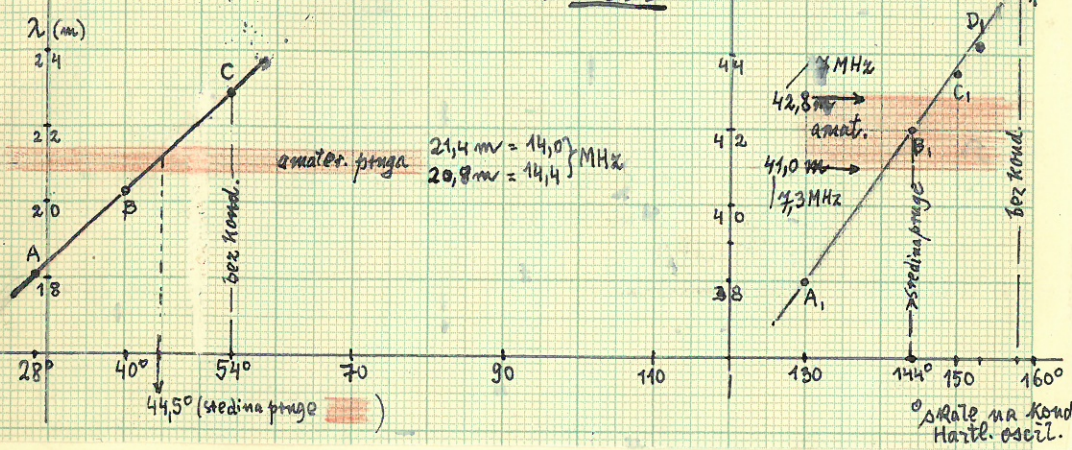 λ (m)
24
22
20
18
A
B
C
bez kond.
amater. pruga
21,4 m = 14,0
20,8 m = 14,4
} MHz
28°
40°
54°
70
90
110
130
144°
150
160°
44,5° (sredina pruge )
44
42
40
38
7 MHz
42,8 m
amat.
41,0 m
7,3 MHz
A₁
B₁
C₁
D₁
sredina pruge
bez kond.
° skale na kond
Hartl. oscil.